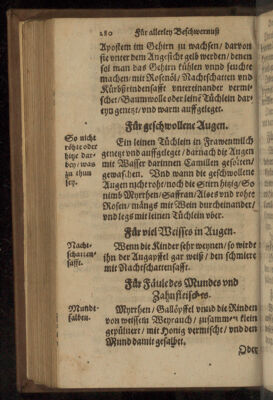 280 Für allerley Beschwernuß
Apostem im Gehirn zu wachsen / darvon
sie vnter dem Angesicht gelb werden / denen
sol man das Gehirn kühlen vnnd feucht
machen / mit Rosenöl / Nachtschatten vnd
Kürbßrindensafft vntereinander vermi-
schet / Baumwolle oder leine Tüchlein dar-
eyn genetzt / vnd warm auffgeleget.
Für geschwollene Augen.
So nicht
röhte oder
hitze dar-
bey / was
zu thun
sey.
Ein leinen Tüchlein in Frawenmilch
genetzt vnd auffgeleget / darnach die Augen
mit Wasser darinnen Camillen gesotten /
gewaschen. Vnd wann die geschwollene
Augen nicht roht / noch die Stirn hitzig / So
nimb Myrrhen / Saffran / Aloes vnd rohte
Rosen / mängs mit Wein durcheinander /
vnd legs mit leinen Tüchlein vber.
Für viel Weisses in Augen.
Nacht-
schatten-
safft.
Wenn die Kinder sehr weynen / so wirde
ihn der Augapffel gar weiß / den schmiere
mit Nachtschattensafft.
Für Fäule des Mundes vnd
Zahnfleisches.
Mundt-
salben.
Myrrhen / Galläpffel vnnd die Rinden
von weissem Weyrauch / zusammen klein
gepülvert / mit Honig vermischt / vnd den
Mund damit gesalbet.
Oder